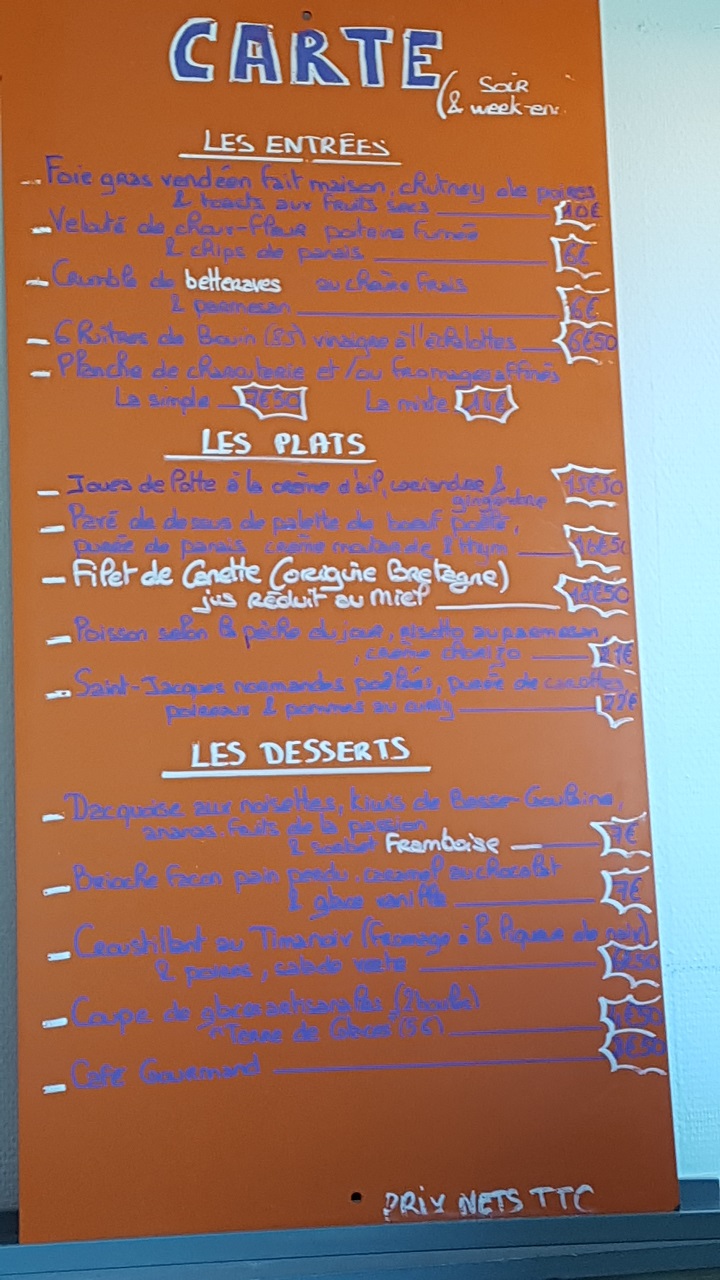 CARTE
(SOIR
& week-en
LES ENTRÉES
Foie gras vendéen fait maison, chutney de poires
& toasts aux fruits secs 10€
Velouté de chou-fleur poitrine fumée
& chips de panais 6€
Crumble de betteraves au chèvre frais
& parmesan 6€
6 Huîtres de Bouin (85) vinaigre à l'échalottes 6€50
Planche de charcuterie et/ou fromages affinés
La simple 7€50 La mixte
LES PLATS
Joues de Lotte à la crème d'ail, coriandre & 15€50
gingembre
Pavé de dessus de palette de boeuf poêlé,
purée de panais crème moutarde & thym 16€50
Filet de Canette (origine Bretagne)
jus réduit au miel 18€50
Poisson selon la pêche du jour, risotto au parmesan
, crème chorizo
Saint-Jacques normandes poêlées, purée de carottes,
poireaux & pommes au curry 22€
LES DESSERTS
Dacquoise aux noisettes, kiwis de Basse-Goulaine,
ananas, fruits de la passion
& sorbet Framboise 7€
Brioche façon pain perdu, caramel au chocolat
& glace vanille 7€
Croustillant au Timanoix (fromage à la liqueur de noix)
& poires, salade verte
Coupe de glaces artisanales (2 boules)
"Terre de Glaces" (56)
Café Gourmand
PRIX NETS TTC